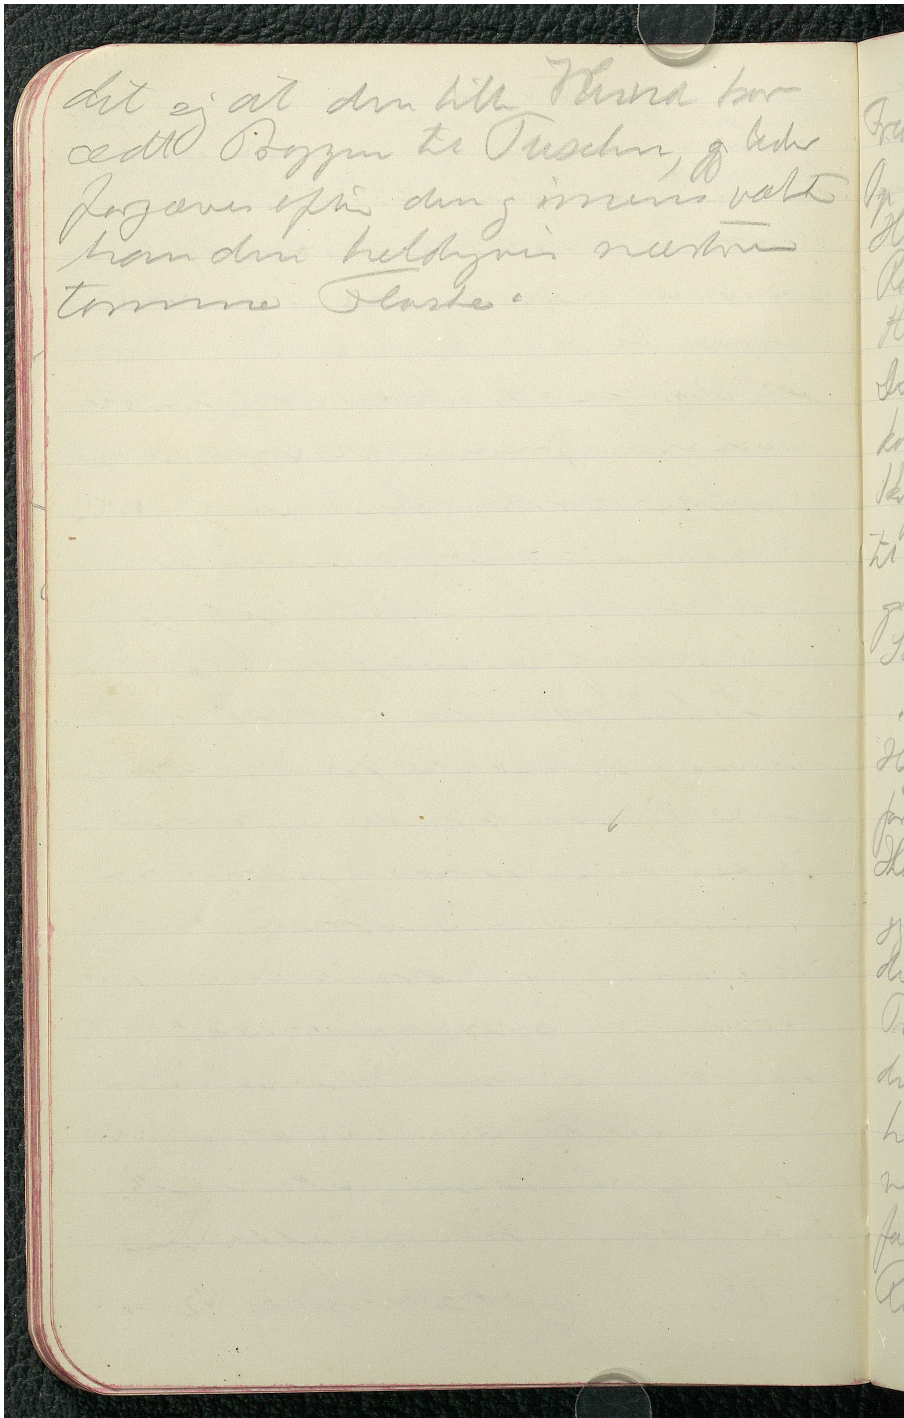 det ej at den lille Hund har
ædt Proppen til Tuschen, og leder
forgæves efter den og imens vælter
han den heldigvis næsten
tomme Flaske.